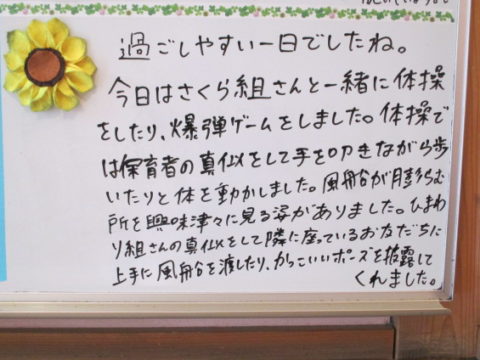 過ごしやすい一日でしたね。
今日はさくら組さんと一緒に体操
をしたり、爆弾ゲームをしました。体操で
は保育者の真似をして手を叩きながら歩
いたりと体を動かしました。風船が膨らむ
所を興味津々に見る姿がありました。ひまわ
り組さんの真似をして隣に座っているお友だちに
上手に風船を渡したり、かっこいいポーズを披露して
くれました。